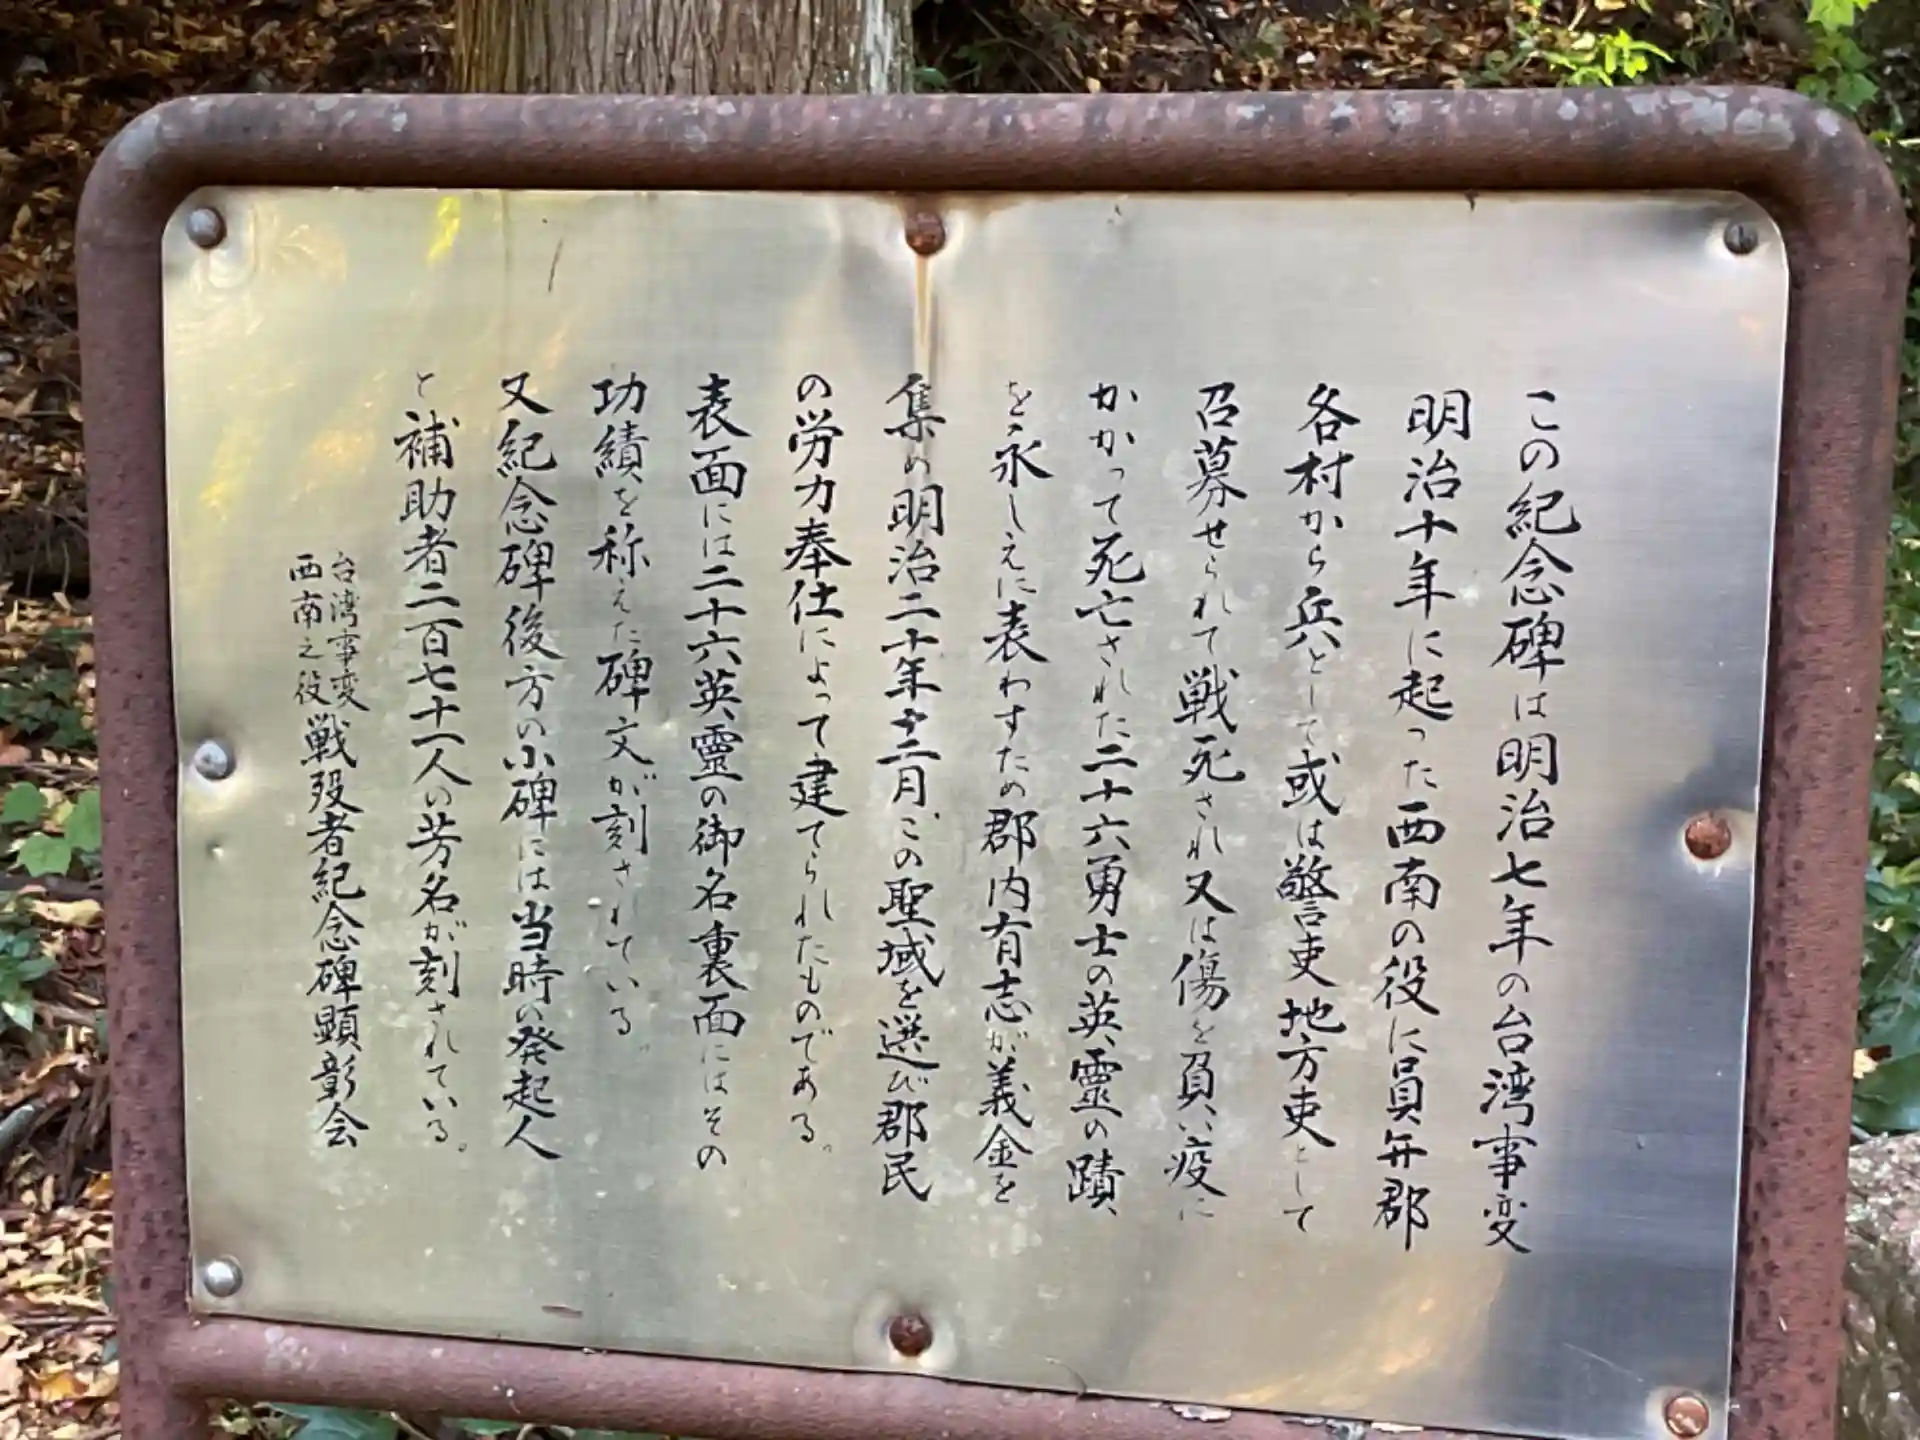 この紀念碑は明治七年の台湾事変
明治十年に起った西南の役に員弁郡
各村から兵として或は警吏地方吏として
召募せられて戦死され又は傷を負い疫に
かかって死亡された二十六勇士の英靈の蹟、
を永しえに表わすため郡内有志が義金を
集め明治二十年十二月、この聖域を選び郡民
の労力奉仕によって建てられたものである。
表面には二十六英靈の御名裏面にはその
功績を称えた碑文が刻されている。
又紀念碑後方の小碑には当時の発起人
と補助者二百七十一人の芳名が刻されている。
台湾事変
西南之役
戦歿者紀念碑顕彰会